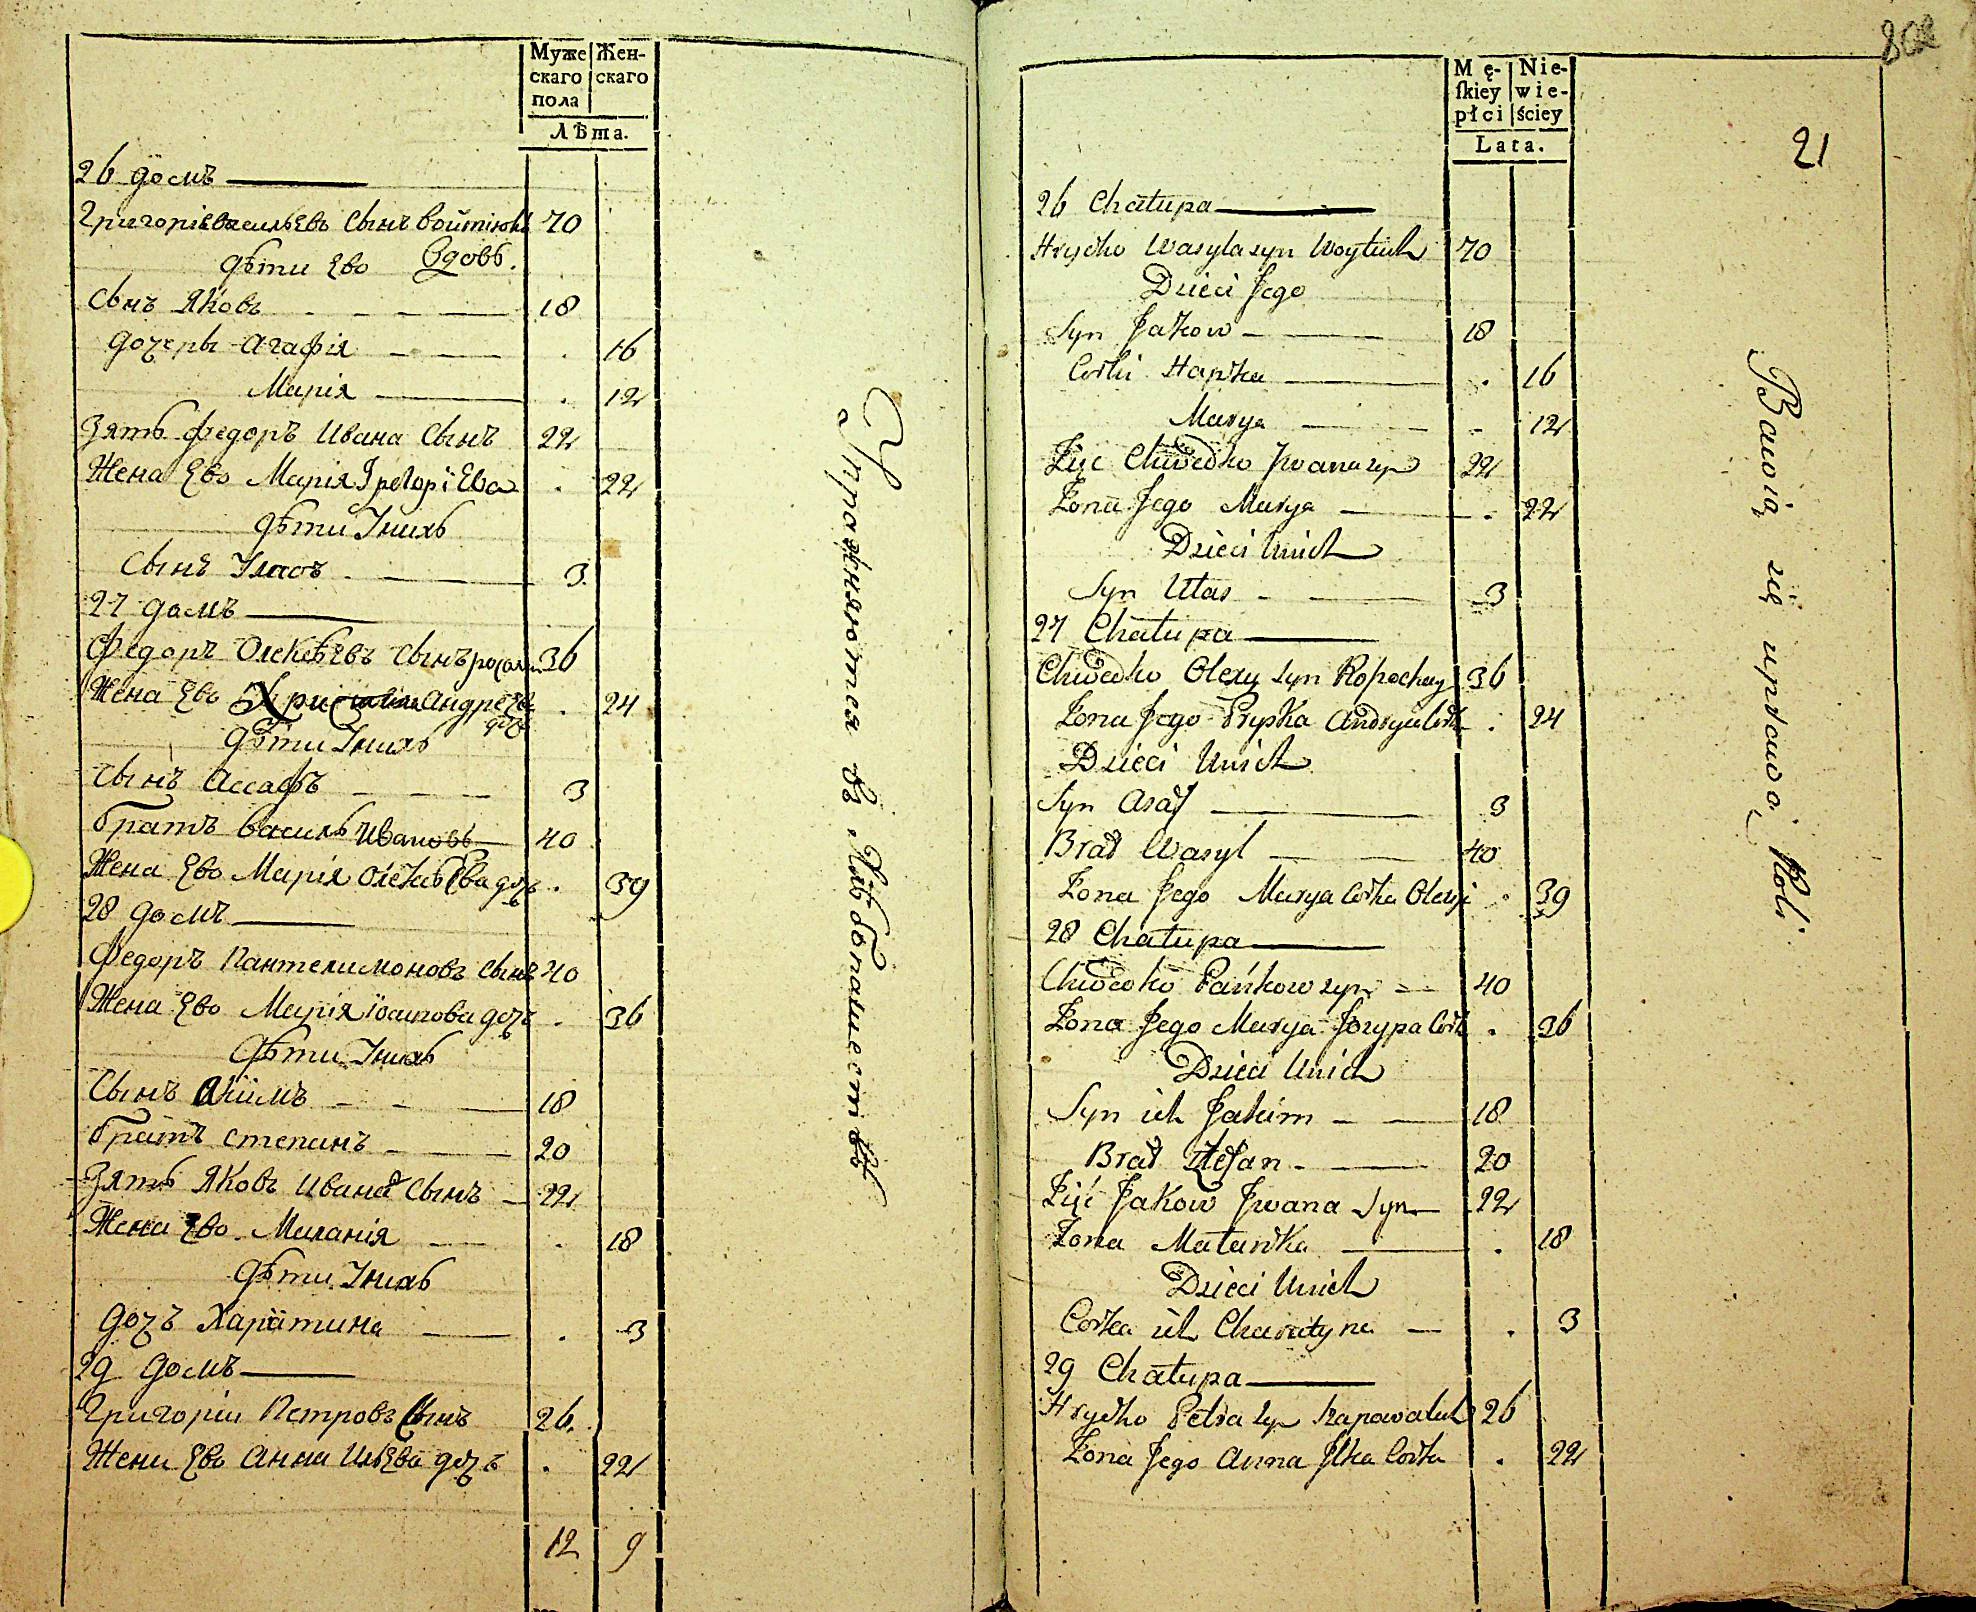 Муже
скаго
пола
Жен-
скаго
Лѣта.
26 домъ
Григорій Васильевъ сынъ Войтюкъ 70
дѣти Ево Вдовъ.
Сынъ Яковъ 18
дочеры Агафія 16
Марія 12
Зять Федоръ Ивана Сынъ 22
Жена Ево Марія Грегорієва 22
дѣти Унихъ
Сынъ Уласъ 3
27 домъ
Федоръ Олексѣевъ Сынъ 36
Жена Ево Андреева доч 24
дѣти Унихъ
Сынъ Ассафъ 3
братъ Василь Ивановъ 40
Жена Ево Марія Олексѣева дочъ 39
28 домъ
Федоръ Пантелимоновъ Сынъ 40
Жена Ево Марія Іосипова дочъ 36
дѣти Унихъ
Сынъ Якимъ 18
братъ Степанъ 20
Зять Яковъ Ивана Сынъ 22
Жена Ево Миланія 18
дѣти Унихъ
дочъ Харитина 3
29 домъ
Григорій Петровъ Сынъ 26
Жена Ево Анна Ильева дочъ 22
12 9
Упражняются въ Хлѣбопашествѣ
802
21
Mę-
ſkiey
płci
Nie-
wie-
ściey
Lata.
26 Chałupa
Hryćko Wasyla syn Woytiuk 70
Dzieci Jego
Syn Jakow 18
Corki Hapka 16
Marya 12
Zięć Chwedko Jwana syn 22
Żona Jego Marya 22
Dzieci Unich
Syn Ułas 3
27 Chałupa
Chwedko Olexy syn Ropochay 36
Żona Jego Pryska Andryia Corka 24
Dzieci Unich
Syn Asaf 3
Brat Wasyl 40
Żona Jego Marya Corka Olexy 39
28 Chałupa
Chwedko Pańkow syn 40
Żona Jego Marya Jozypa Corka 36
Dzieci Unich
Syn ich Jakim 18
Brat Stefan 20
Zięć Jakow Jwana Syn 22
Żona Małanka 18
Dzieci Unich
Corka ich Charatyna 3
29 Chałupa
Hryćko Petra syn Szapowaluk 26
Żona Jego Anna Jlka Corka 22
Bawią się uprawą Roli